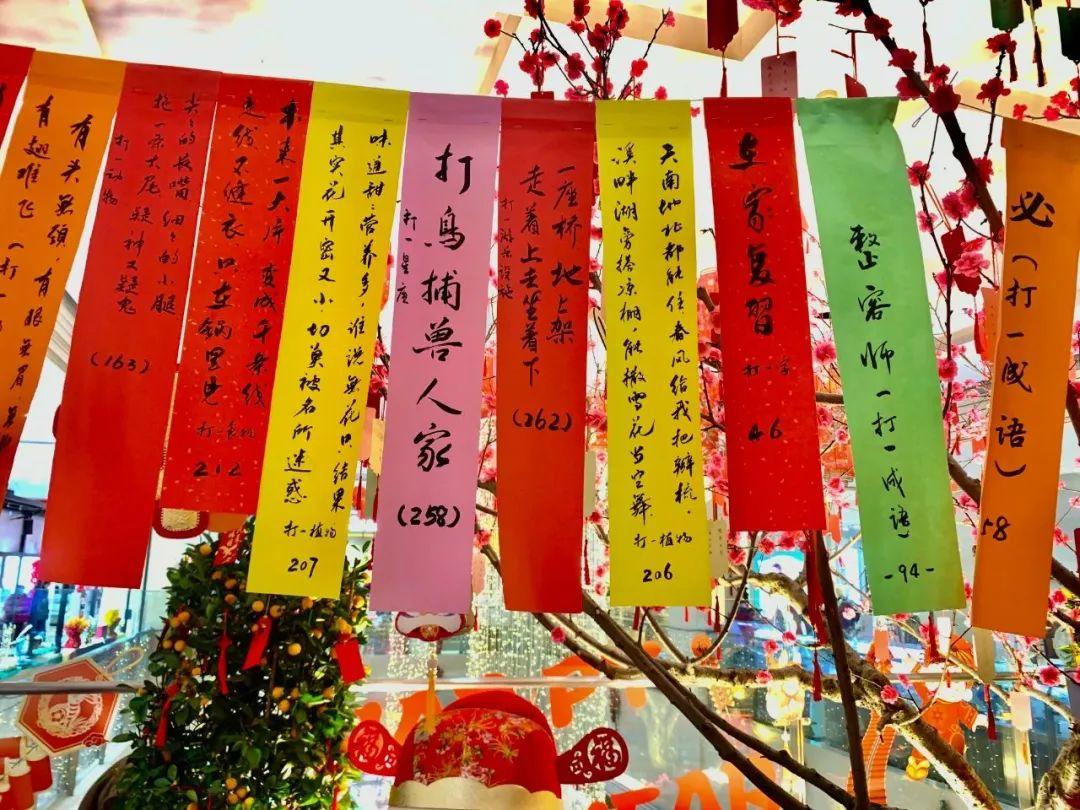 有头無頸,有眼無眉,
有翅难飞(打一
尖尖的长嘴,细细的小腿
拖一条大尾,疑神又疑鬼
打一动物
(163)
本来一大片 变成千条线
线又缝衣 只在锅里見
打一食物
212
味道甜甜营养多,谁说無花只结果
其实花开密又小,切莫被名所迷惑
打一植物
207
打鳥捕兽人家
打一星座
(258)
一座桥 地上架
走着上去坐着下
打一游乐设施
(262)
天南地北都能住,春风给我把辫梳,
溪畔湖旁搭凉棚,能撒雪花当空舞
打一植物
206
在家复習
打一字
46
整容师(打一成语)
-94-
必(打一成语)
58
福
福